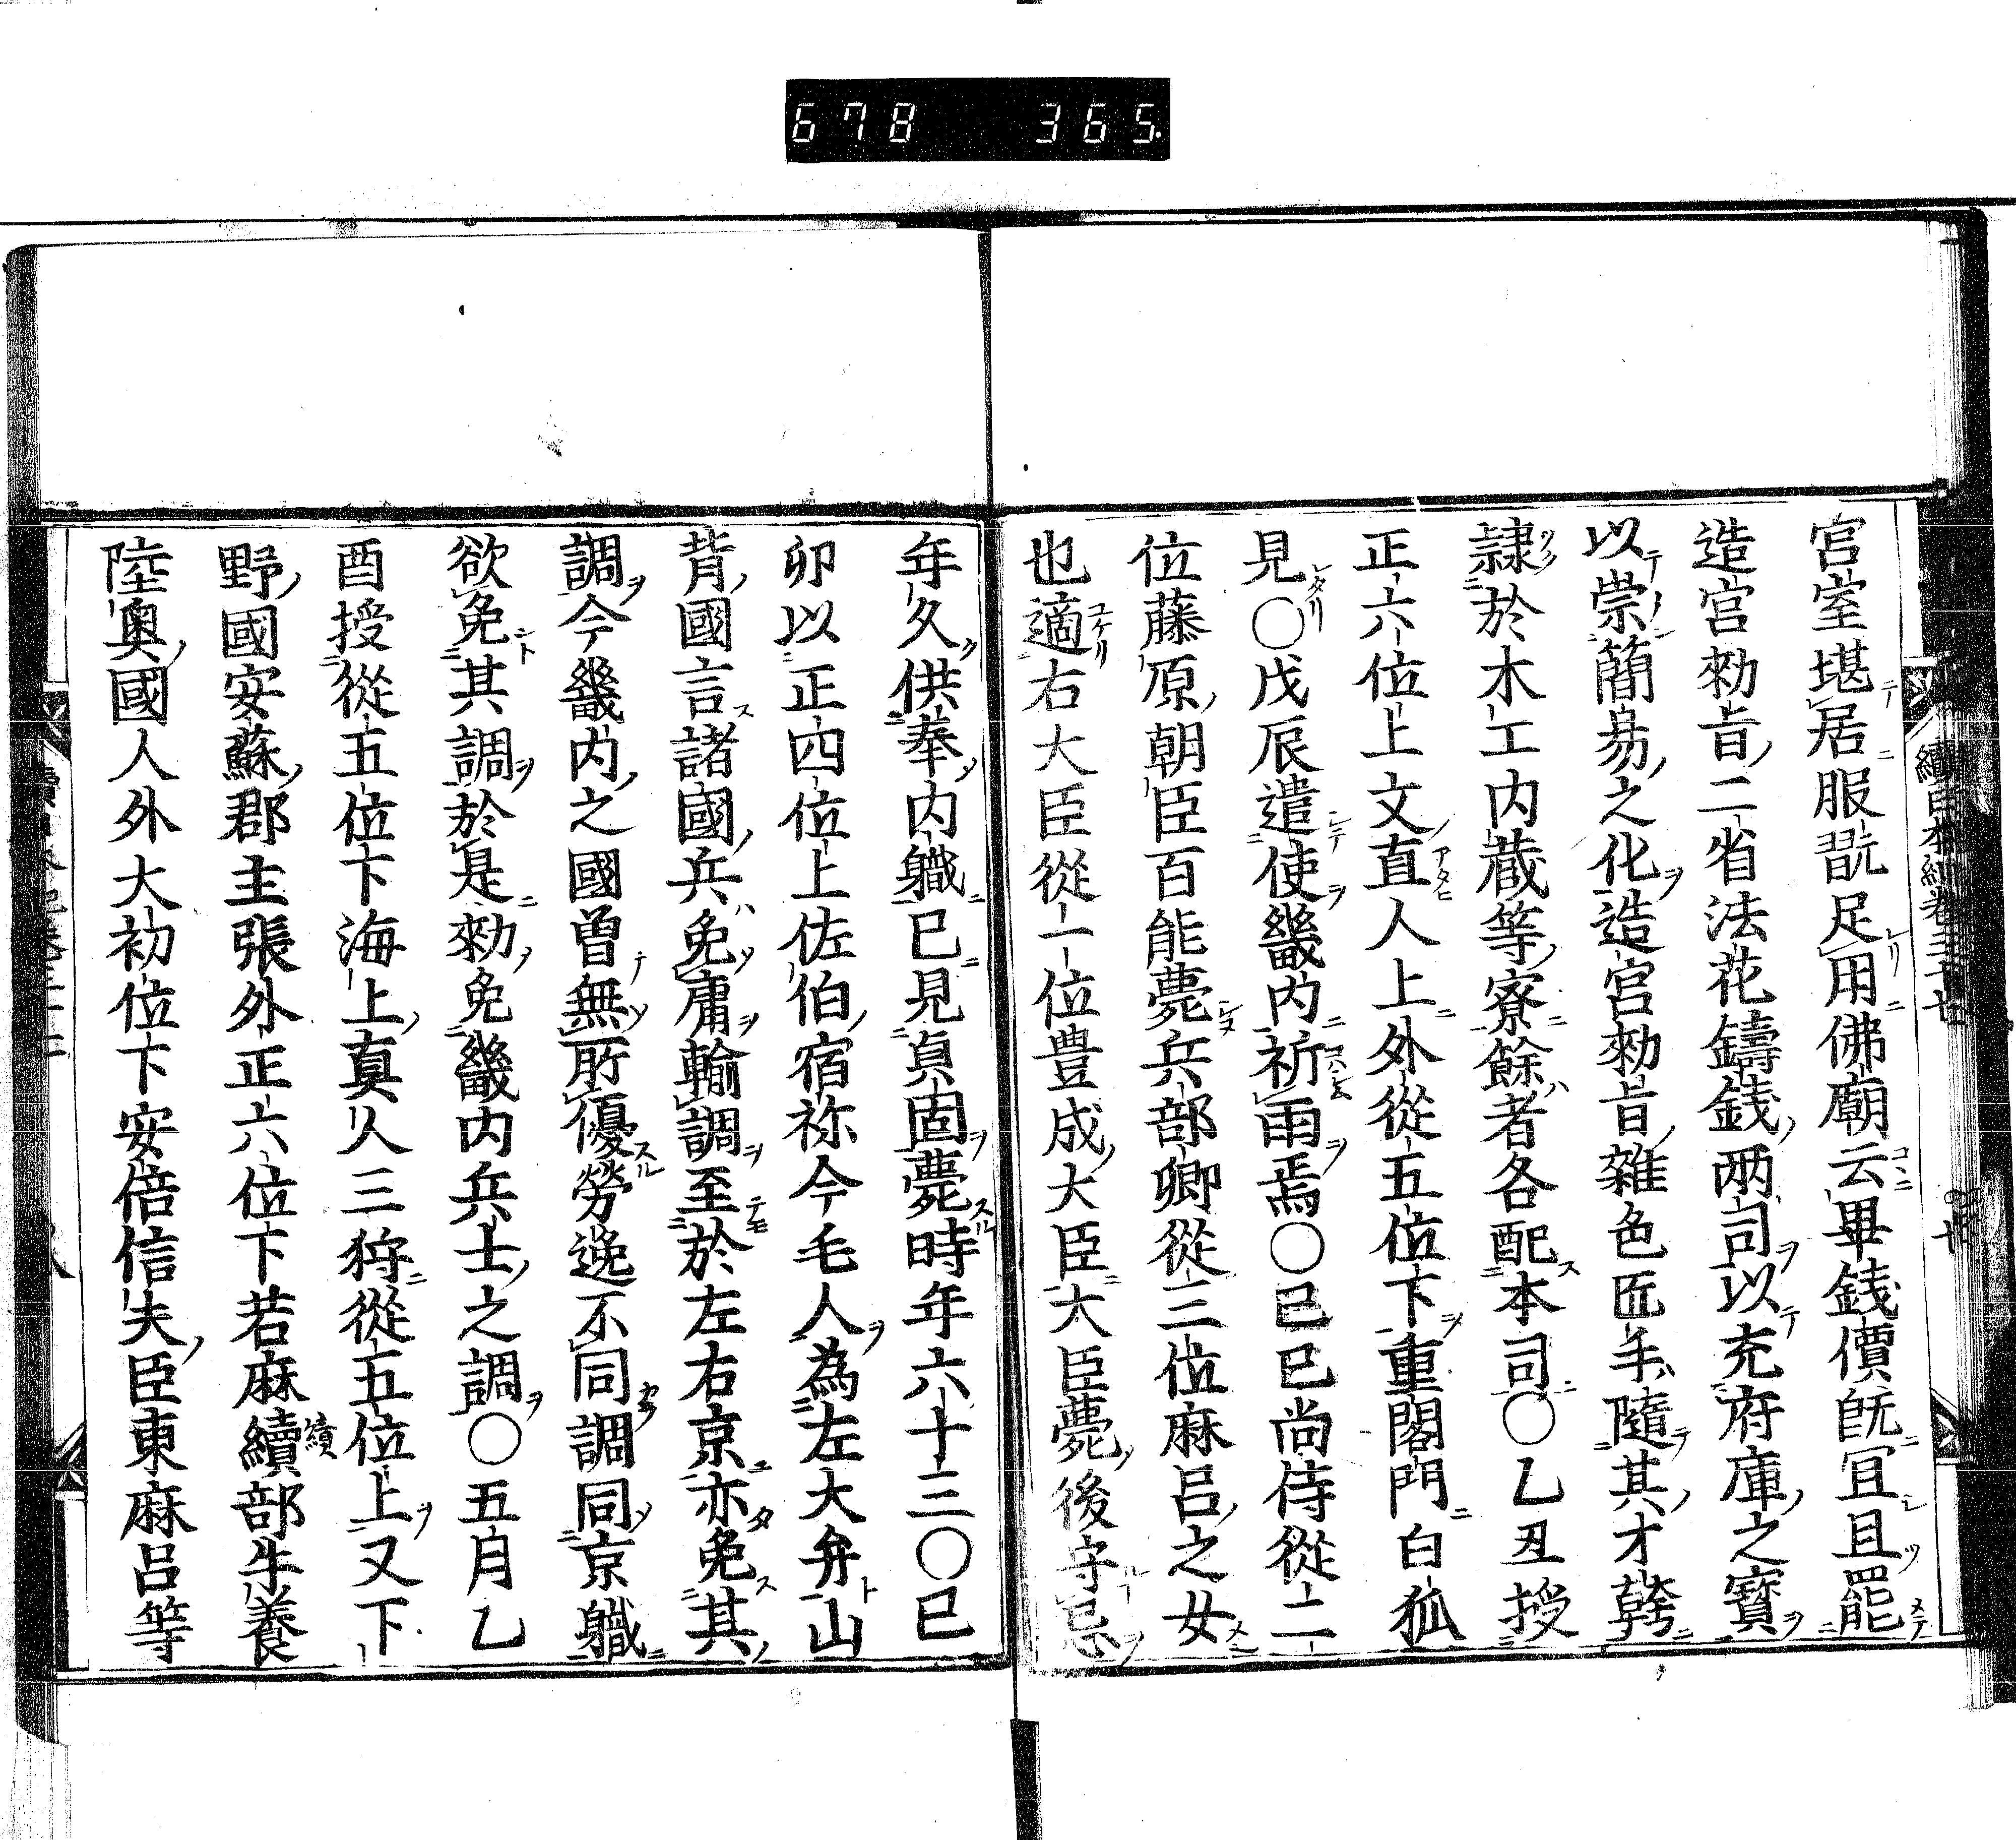 678 365.
宮室堪居服翫足用佛廟云畢錢價既冝且罷
造宮勅旨二省法花鑄錢两司以充府庫之寳
以崇簡易之化造宮勅旨雜色匠手隨其才䠸
隷於木工内蔵等寮餘者各配本司○乙丑授
正六位上文直人上外從五位下重閣門白狐
見○戊辰遣使畿内祈雨焉○己巳尚侍從二
位藤原朝臣百能薨兵部卿從三位麻呂之女
也適右大臣從一位豊成大臣大臣薨後守忌
年久供奉内軄已見貞固薨時年六十三○已
卯以正四位上佐伯宿祢今毛人為左大弁山
背國言諸國兵免庸輸調至於左右京亦免其
調今畿内之國曽無所優勞逸不同調同京軄
欲免其調於是勅免畿内兵士之調○五月乙
酉授從五位下海上真人三狩從五位上又下
野國安蘇郡主張外正六位下若麻續部牛養
陸奥國人外大初位下安倍信夫臣東麻呂等